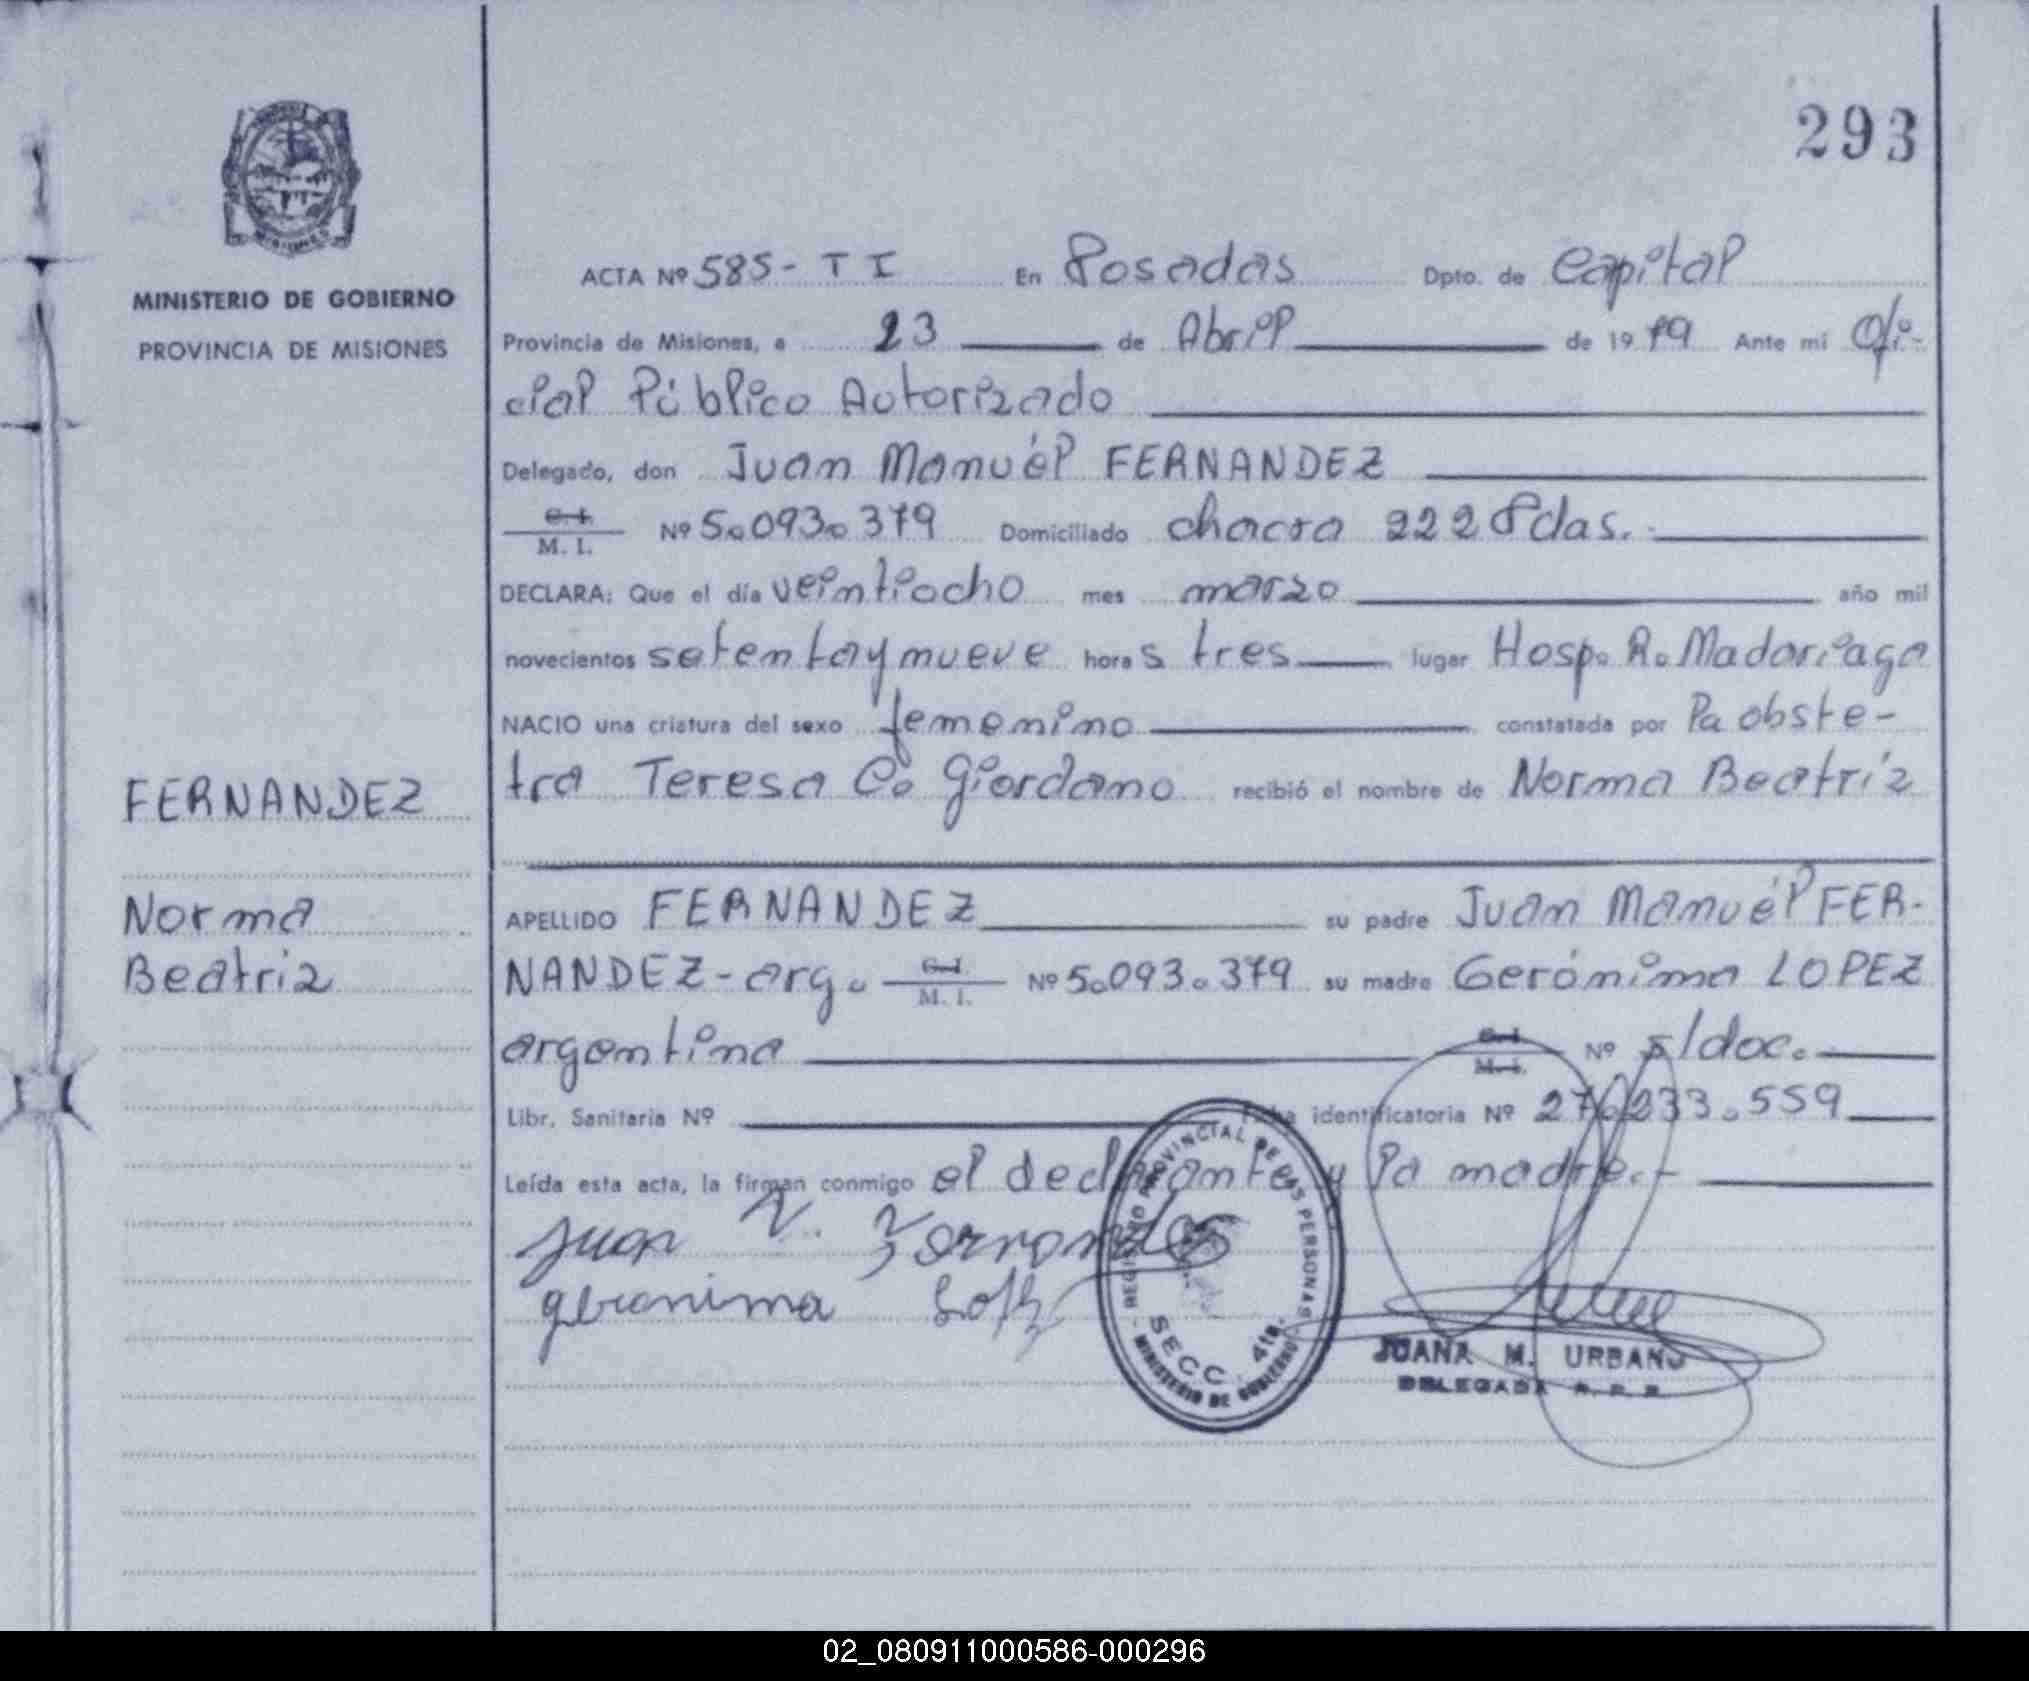 293
MINISTERIO DE GOBIERNO
PROVINCIA DE MISIONES
ACTA Nº 585- T I En Posadas Dpto. de Capital
Provincia de Misiones, a 23 de Abril de 1979 Ante mi Ofi-
cial Público Autorizado
Delegado, don Juan Manuél FERNANDEZ
C. I. M. I. Nº 5.093.379 Domiciliado chacra 222 Pdas.-
DECLARA: Que el día veintiocho mes marzo año mil
novecientos setentaynueve horas tres lugar Hosp. R. Madariaga
NACIO una criatura del sexo femenino constatada por la obste-
tra Teresa C. Giordano recibió el nombre de Norma Beatríz
FERNANDEZ
Norma
Beatriz
APELLIDO FERNANDEZ su padre Juan Manuél FER-
NANDEZ-arg. C. I. M. I. Nº 5.093.379 su madre Gerónima LOPEZ
argentina C. I. M. I. Nº s/doc.
Libr. Sanitaria Nº Ficha identificatoria Nº 27.233.559
Leída esta acta, la firman conmigo el declarante y la madre.-
Juan
geronima
REGISTRO PROVINCIAL DE LAS PERSONAS
SECC. 4ta.
MINISTERIO DE GOBIERNO
JUANA M. URBANO
DELEGADA R. P. P.
02_080911000586-000296